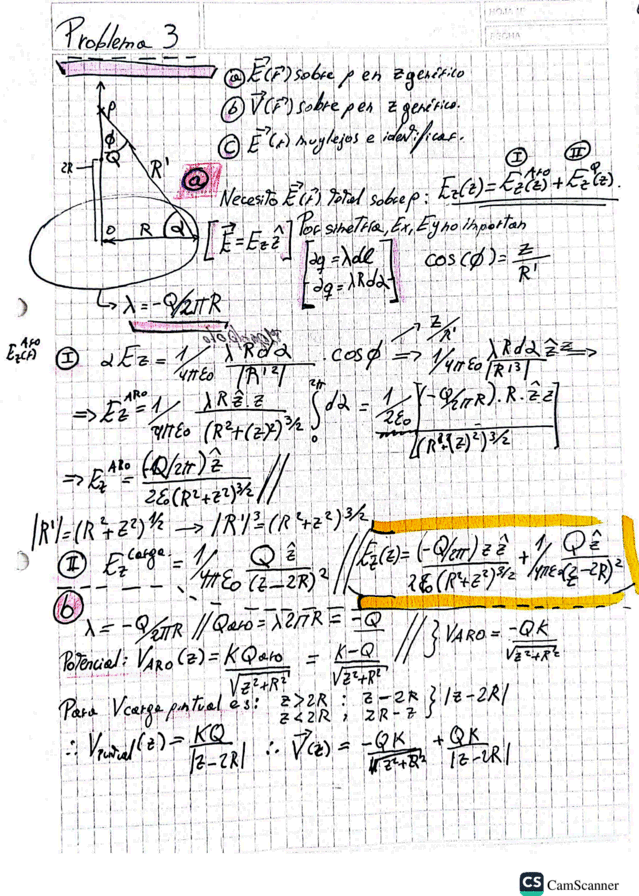 HOJA Nº
FECHA
Problema 3
ⓐ E⃗(r⃗) sobre p en z genérico
ⓑ V⃗(r⃗) sobre p en z genérico.
ⓒ E⃗(r) muy lejos e identificar.
P
ϕ
Q
2R
R'
R
α
O
ⓐ
Necesito E⃗(r⃗) total sobre p: E_z(z) = E_z^ARO(z) + E_z^Q(z).
Ⓘ Ⓘ Ⓘ
[E⃗ = E_z ẑ] Por simetría, Ex, Ey no importan
[dq = λdl
dq = λRdα] cos(ϕ) = z/R'
↳ λ = -Q/2πR
E_z^ARO(r⃗)
Ⓘ dE_z = 1/4πε₀ λRdα/|R'²| . cosϕ → z/R' => 1/4πε₀ λRdα/|R'³| ẑ z =>
=> E_z^ARO = 1/4πε₀ λRẑ.z/(R²+(z)²)^3/2 ∫₀^2π dα = 1/2ε₀ [(-Q/2πR).R.ẑ z/(R²+(z)²)^3/2]
=> E_z^ARO = (-Q/2π) ẑ/2ε₀(R²+z²)^3/2 //
|R'| = (R²+z²)^1/2 → |R'|³ = (R²+z²)^3/2
ⒾⒾ E_z^carga = 1/4πε₀ Q ẑ/(z-2R)² // E_z(z) = (-Q/2π) z ẑ/2ε₀(R²+z²)^3/2 + 1/4πε₀ Q ẑ/(z-2R)²
ⓑ
λ = -Q/2πR // Qaro = λ2πR = -Q
Potencial: V_ARO(z) = KQaro/√z²+R² = K-Q/√z²+R² // } V_ARO = -QK/√z²+R²
Para Vcarga puntual es: z>2R : z-2R } |z-2R|
z<2R ; 2R-z
∴ V_puntual(z) = KQ/|z-2R| ∴ V⃗(z) = -QK/√z²+R² + QK/|z-2R|
CS CamScanner